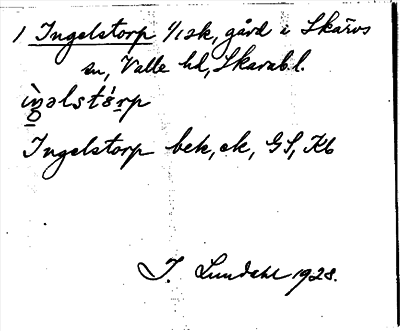 1 Ingelstorp 1/1 sk, gård i Skärvs
sn, Valle hd, Skarabl.
Ingelstorp bek, ek, GS, Kb
I. Lundahl 1928.